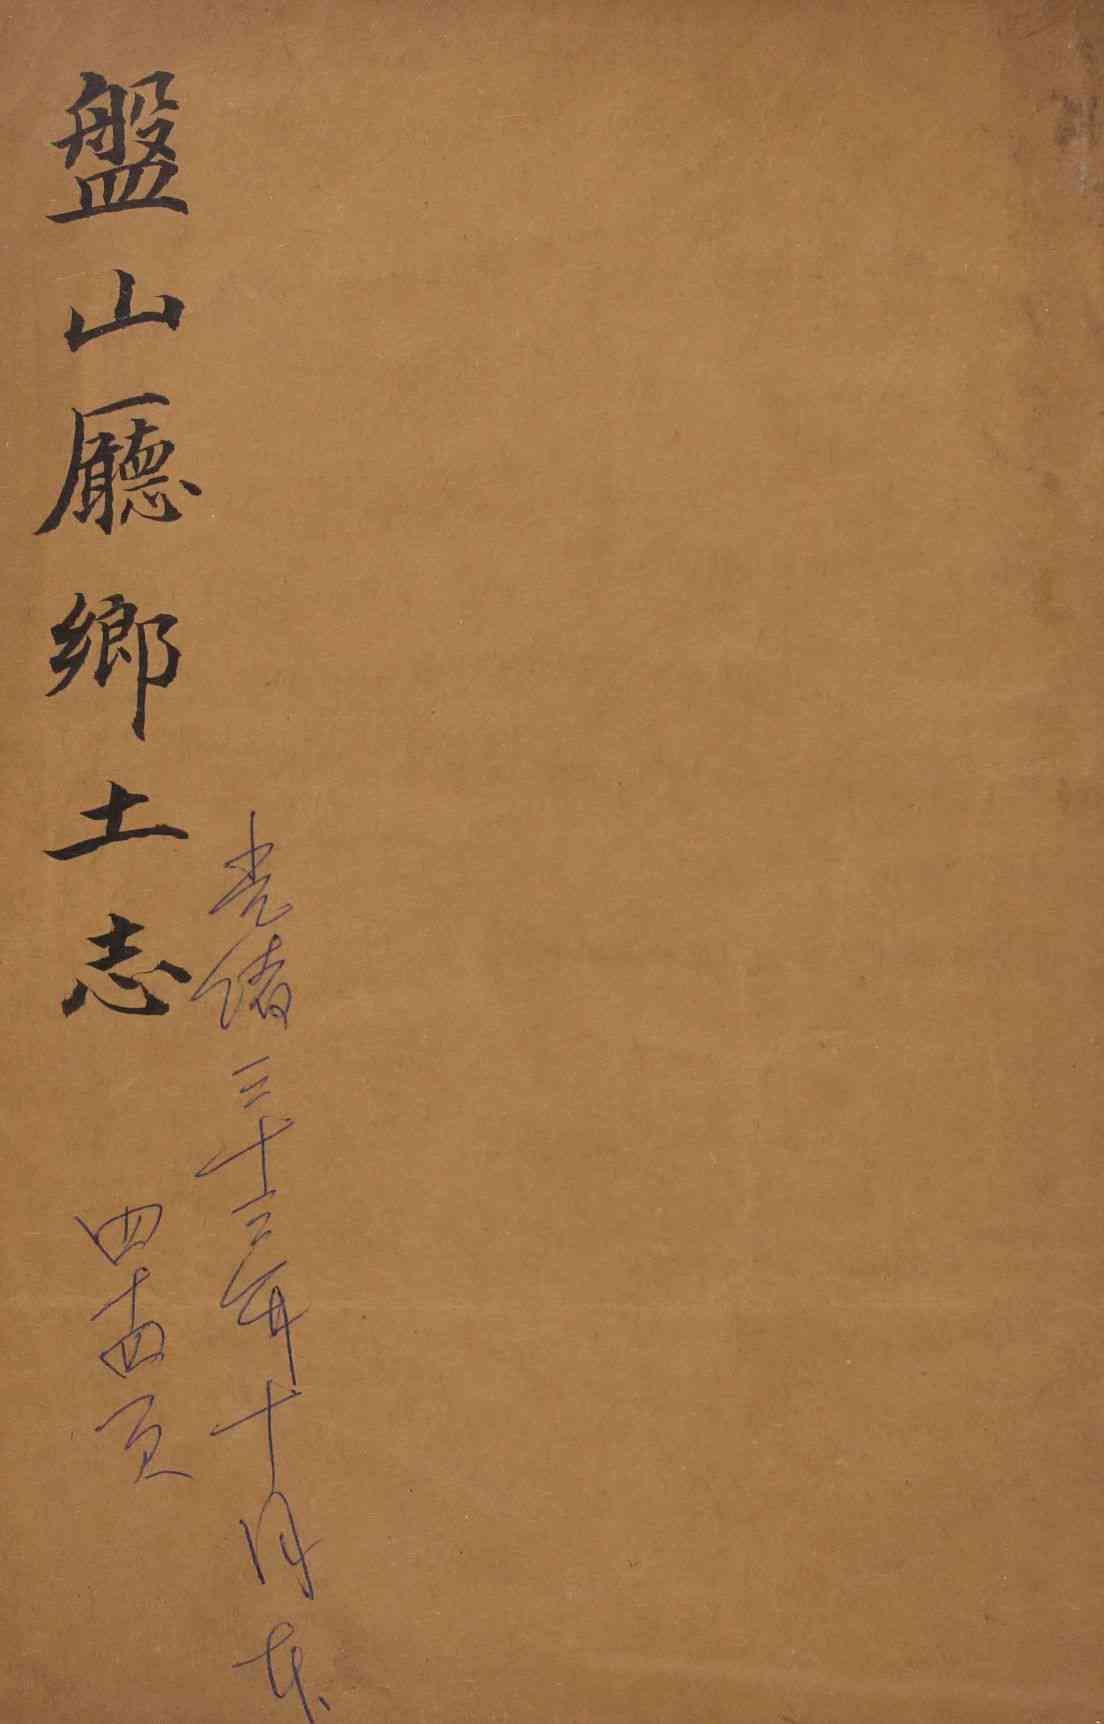 光绪三十三年十月本
盤山廳鄉土志
四十四页